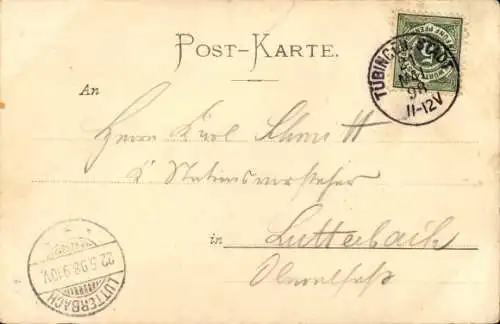 POST-KARTE.
TÜBINGEN STADT
11-12V
FÜNF PFENNIG
An
Herrn Karl Schmitt
K. Stationsvorsteher
in Lutterbach
Oberelsaß
LUTTERBACH
22.5.98.9-10V.